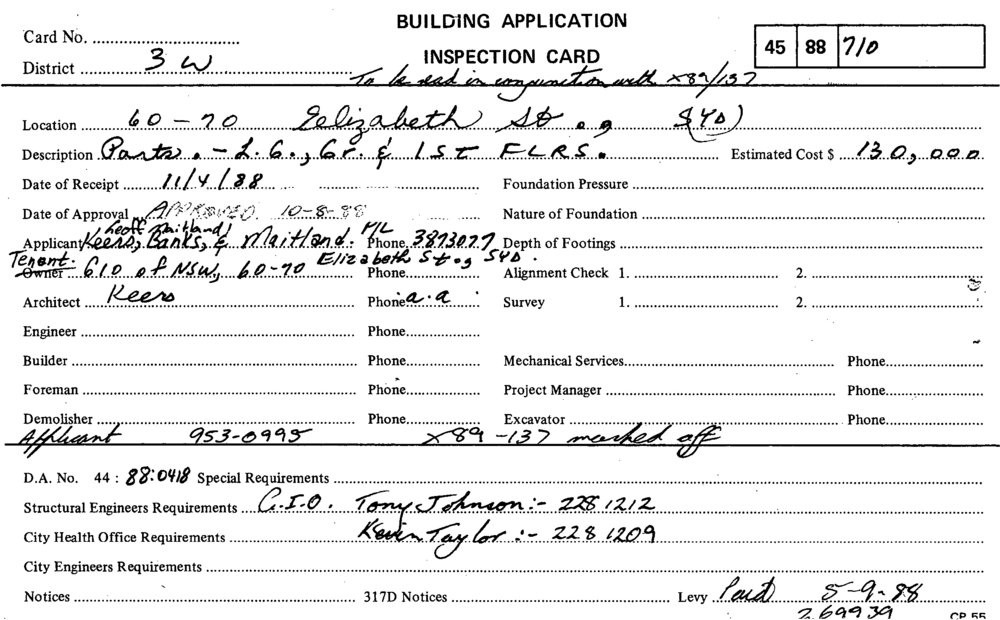 BUILDING APPLICATION
Card No.
INSPECTION CARD
45 88 710
District 3 W
To be read in conjunction with X89/137
Location 60-70 Elizabeth St., SYD
Description Parts. - L.G., Gr. & 1st FLRS. Estimated Cost $ 130,000
Date of Receipt 11/4/88 Foundation Pressure
Date of Approval APPROVED 10-8-88 Nature of Foundation
(Geoff Maitland)
Applicant Keers, Banks, & Maitland. P/L Phone 3873077 Depth of Footings
Tenent.
Owner GIO of NSW, 60-70 Elizabeth St., SYD. Phone Alignment Check 1. 2.
Architect Keers Phone a.a. Survey 1. 2.
Engineer Phone
Builder Phone Mechanical Services Phone
Foreman Phone Project Manager Phone
Demolisher Phone Excavator Phone
Applicant 953-0995 X89-137 marked off
D.A. No. 44 : 88:0418 Special Requirements
Structural Engineers Requirements G.I.O. Tony Johnson:- 228 1212
City Health Office Requirements Kevin Taylor :- 228 1209
City Engineers Requirements
Notices 317D Notices Levy Paid 5-9-88
269939 CP 55